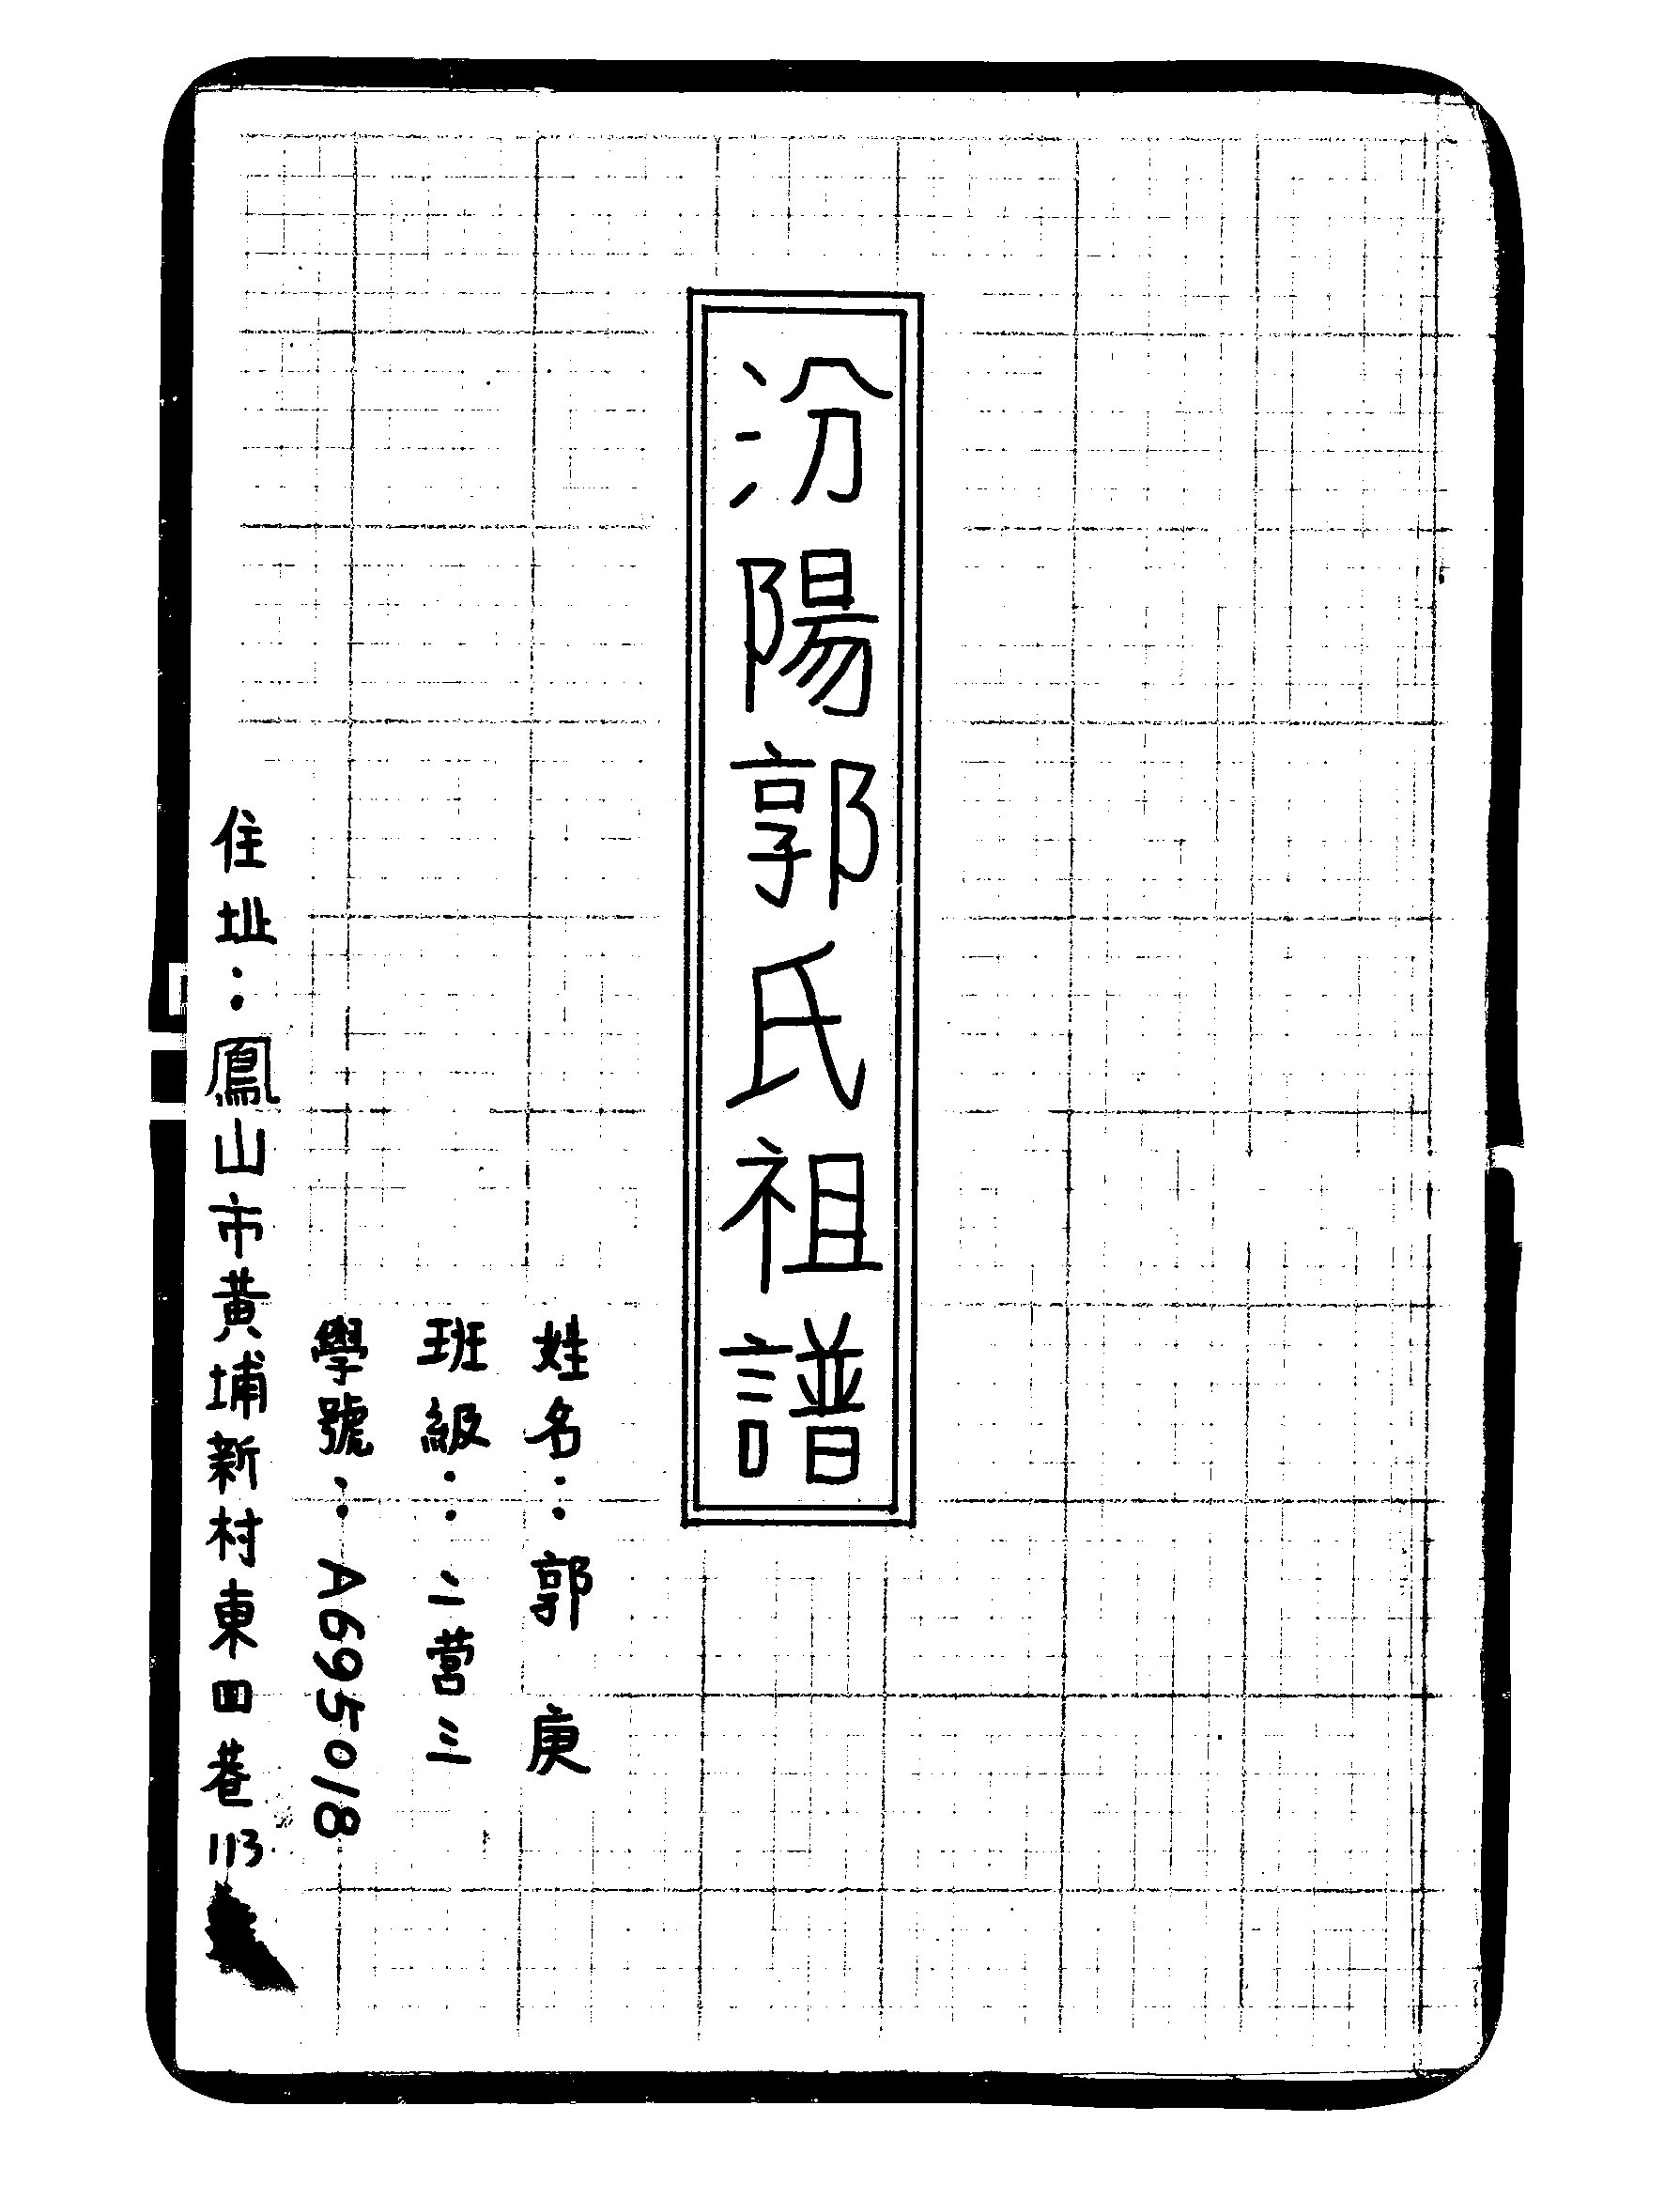 汾陽郭氏祖譜
姓名：郭　庚
班級：二營三
學號：A695018
住址：鳳山市黃埔新村東四巷113